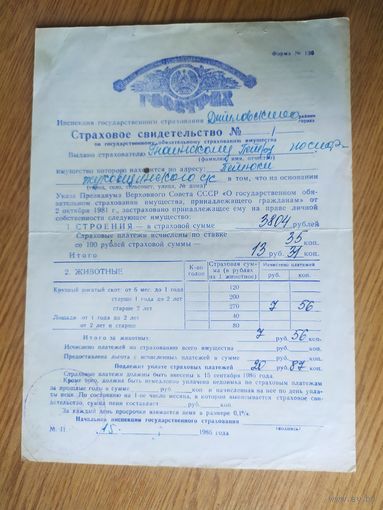 Форма № 130
ГОССТРАХ
Инспекция государственного страхования района
города
Страховое свидетельство № 1
по государственному обязательному страхованию имущества
Выдано страхователю
(фамилия, имя, отчество)
имущество которого находится по адресу:
в том, что на основании
(город, село, сельсовет, улица, № дома)
Указа Президиума Верховного Совета СССР «О государственном обя-
зательном страховании имущества, принадлежащего гражданам» от
2 октября 1981 г., застраховано принадлежащее ему на праве личной
собственности следующее имущество:
1 СТРОЕНИЯ — в страховой сумме 3804 рублей
Страховые платежи исчислены по ставке 35 коп.
со 100 рублей страховой суммы
Итого 13 руб. 31 коп.
2. ЖИВОТНЫЕ К-во голов Страховая сумма (в рублях на 1 животное) Исчислено платежей
руб. коп.
Крупный рогатый скот: от 6 мес. до 1 года 120
старше 1 года до 2 лет 200
старше 2 лет 270 7 56
Лошади от 1 года до 2 лет 40
старше 80
Итого за животных 7 56
Исчислено платежей по страхованию всего имущества руб. коп.
Предоставлена льгота с исчисленных платежей в сумме руб. коп.
Подлежит уплате страховых платежей 20 руб. 87 коп.
Страховые платежи должны быть внесены к 15 сентября 1985 года.
Кроме того, должна быть немедленно уплачена недоимка по страховым платежам
за прошлые годы в сумме руб. коп. и начисленная на нее по день упла-
ты пеня. По состоянию на 1-ое число месяца, в котором выписывается страховое сви-
детельство, сумма пени составляет руб. коп.
За каждый день просрочки взимается пеня в размере 0,1%.
Начальник инспекции государственного страхования
(подпись)
М. П. 15 1985 года